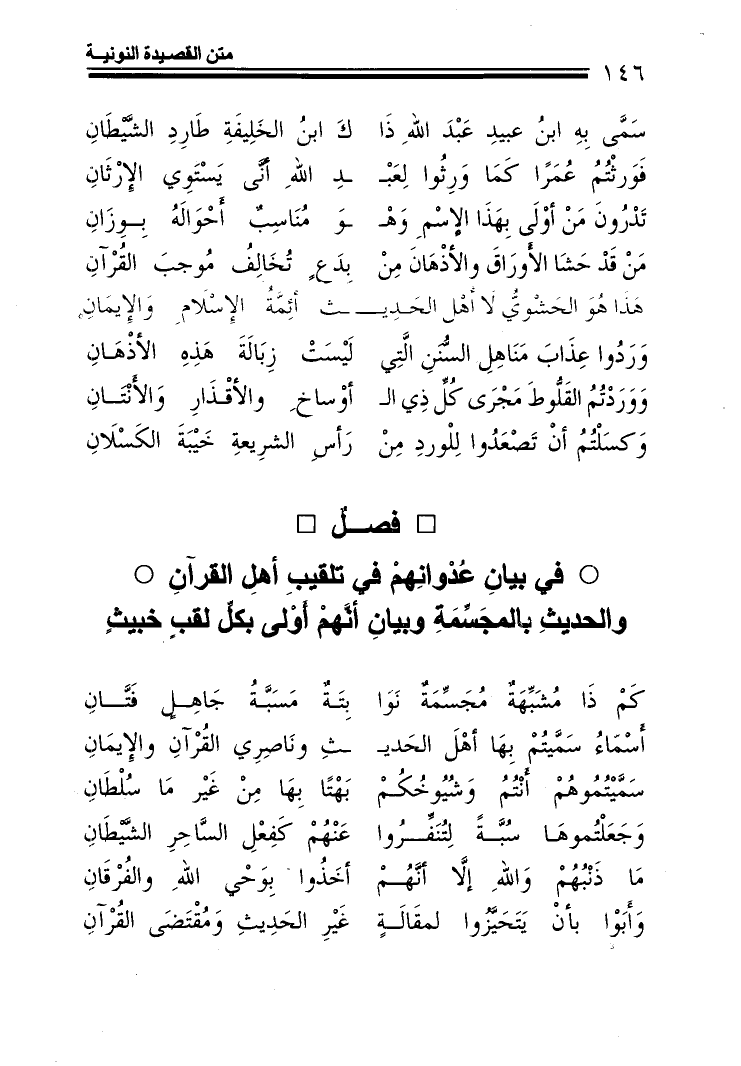 متن القصيدة النونيـة
١٤٦
سَمَّى بِهِ ابنُ عبيدِ عَبْدَ اللهِ ذَا كَ ابنُ الخَلِيفَةِ طَارِدِ الشَّيْطَانِ
فَوَرِثْتُمُ عُمَرًا كَمَا وَرِثُوا لِعَبْـ ـدِ اللهِ أَنَّى يَسْتَوِي الإِرْثَانِ
تَدْرُونَ مَنْ أَوْلَى بِهَذَا الإِسْمِ وَهْـ ـوَ مُنَاسِبٌ أَحْوَالَهُ بِـوِزَانِ
مَنْ قَدْ حَشَا الأَوْرَاقَ والأَذْهَانَ مِنْ بِدَعٍ تُخَالِفُ مُوجبَ القُرْآنِ
هَذَا هُوَ الحَشْوِيُّ لَا أَهْلَ الحَدِيـ ـثِ أَئِمَّةُ الإِسْلَامِ وَالإِيمَانِ
وَرَدُوا عِذَابَ مَنَاهِلِ السُّنَنِ الَّتِي لَيْسَتْ زِبَالَةَ هَذِهِ الأَذْهَانِ
وَوَرَدْتُمُ القَلُّوطَ مَجْرَى كُلِّ ذِي الـ أَوْسَاخِ والأَقْذَارِ وَالأَنْتَـانِ
وَكَسَلْتُمُ أَنْ تَصْعَدُوا لِلْوِردِ مِنْ رَأسِ الشريعةِ خَيْبَةَ الكَسْلَانِ
□ فصـلٌ □
○ في بيانِ عُدْوانِهِمْ في تلقيبِ أهلِ القرآنِ ○
والحديثِ بالمجَسِّمَةِ وبيانِ أنَّهمْ أَوْلى بكلِّ لقبٍ خبيثٍ
كَمْ ذَا مُشَبِّهَةٌ مُجَسِّمَةٌ نَوَا بِتَةٌ مَسَبَّةُ جَاهِـلٍ فَتَّـانِ
أَسْمَاءُ سَمَّيْتُمْ بِهَا أَهْلَ الحَديـ ـثِ وَنَاصِرِي القُرْآنِ والإِيمَانِ
سَمَّيْتُمُوهُمْ أَنْتُمُ وَشُيُوخُكُـمْ بَهْتًا بِهَا مِنْ غَيْرِ مَا سُلْطَانِ
وَجَعَلْتُموهَـا سُبَّةً لِتُنَفِّـرُوا عَنْهُمْ كَفِعْلِ السَّاحِرِ الشَّيْطَانِ
مَا ذَنْبُهُمْ وَاللهِ إِلَّا أَنَّهُـمْ أَخَذُوا بِوَحْيِ اللهِ والفُرْقَانِ
وَأَبَوْا بأَنْ يَتَحَيَّزُوا لمقَالَـةٍ غَيْرِ الحَدِيثِ وَمُقْتَضَى القُرْآنِ